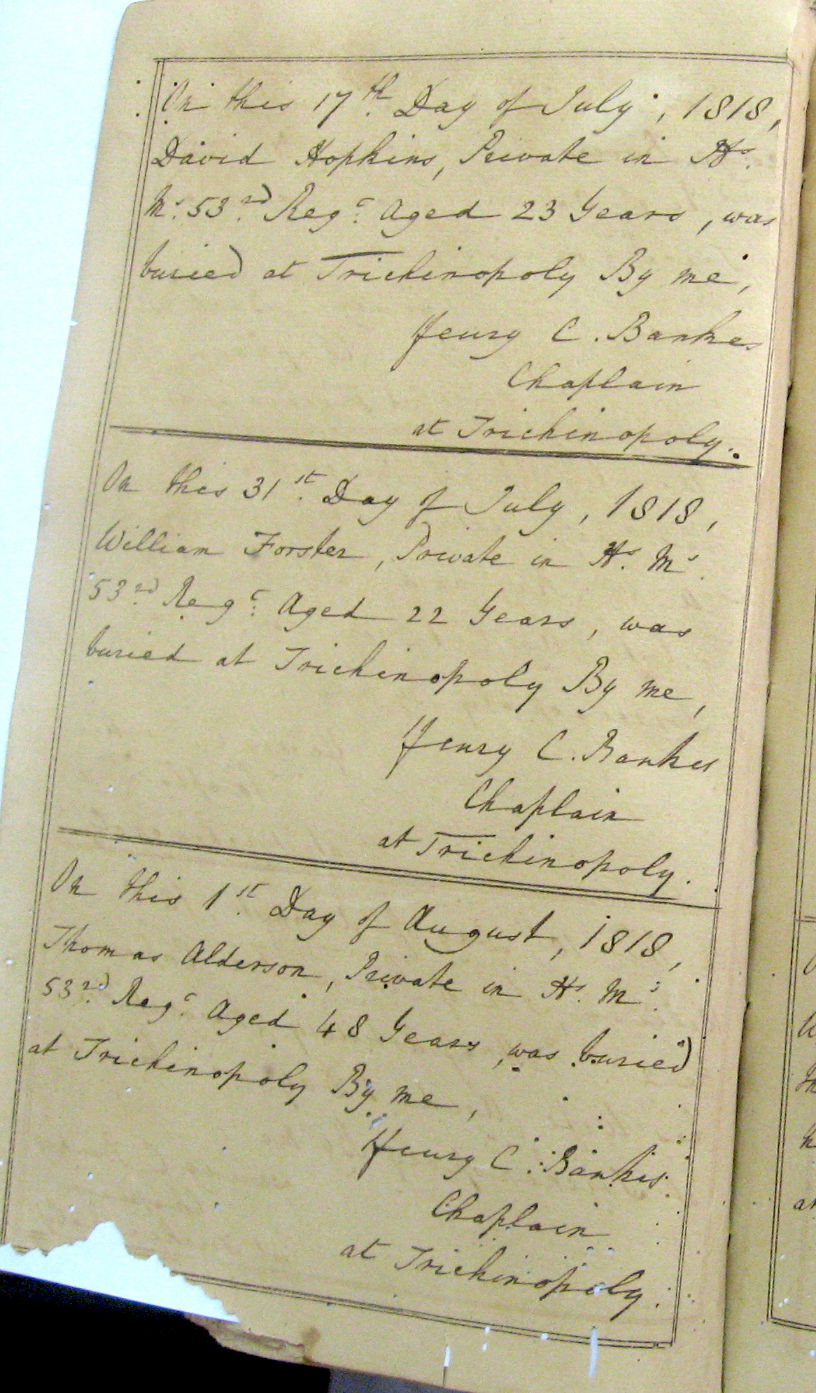 On this 17th Day of July, 1818,
David Hopkins, Private in Hs.
Ms. 53rd Regt. Aged 23 Years, was
buried at Trichinopoly By me,
Henry C. Bankes
Chaplain
at Trichinopoly.
On this 31st. Day of July, 1818,
William Forster, Private in Hs. Ms.
53rd Regt. Aged 22 Years, was
buried at Trichinopoly By me,
Henry C. Bankes
Chaplain
at Trichinopoly.
On this 1st. Day of August, 1818,
Thomas Alderson, Private in Hs. Ms.
53rd. Regt. Aged 48 Years, was buried
at Trichinopoly By me,
Henry C. Bankes
Chaplain
at Trichinopoly.